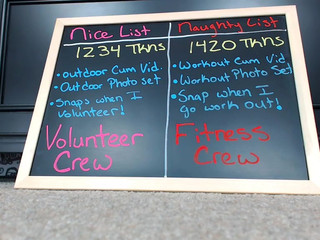 Nice List
1234 Tkns
• Outdoor Cum Vid.
• Outdoor Photo Set
• Snaps when I
volunteer!
Volunteer
Crew
Naughty List
1420 Tkns
• Workout Cum Vid.
• Workout Photo Set
• Snap when I
go work out!
Fitness
Crew